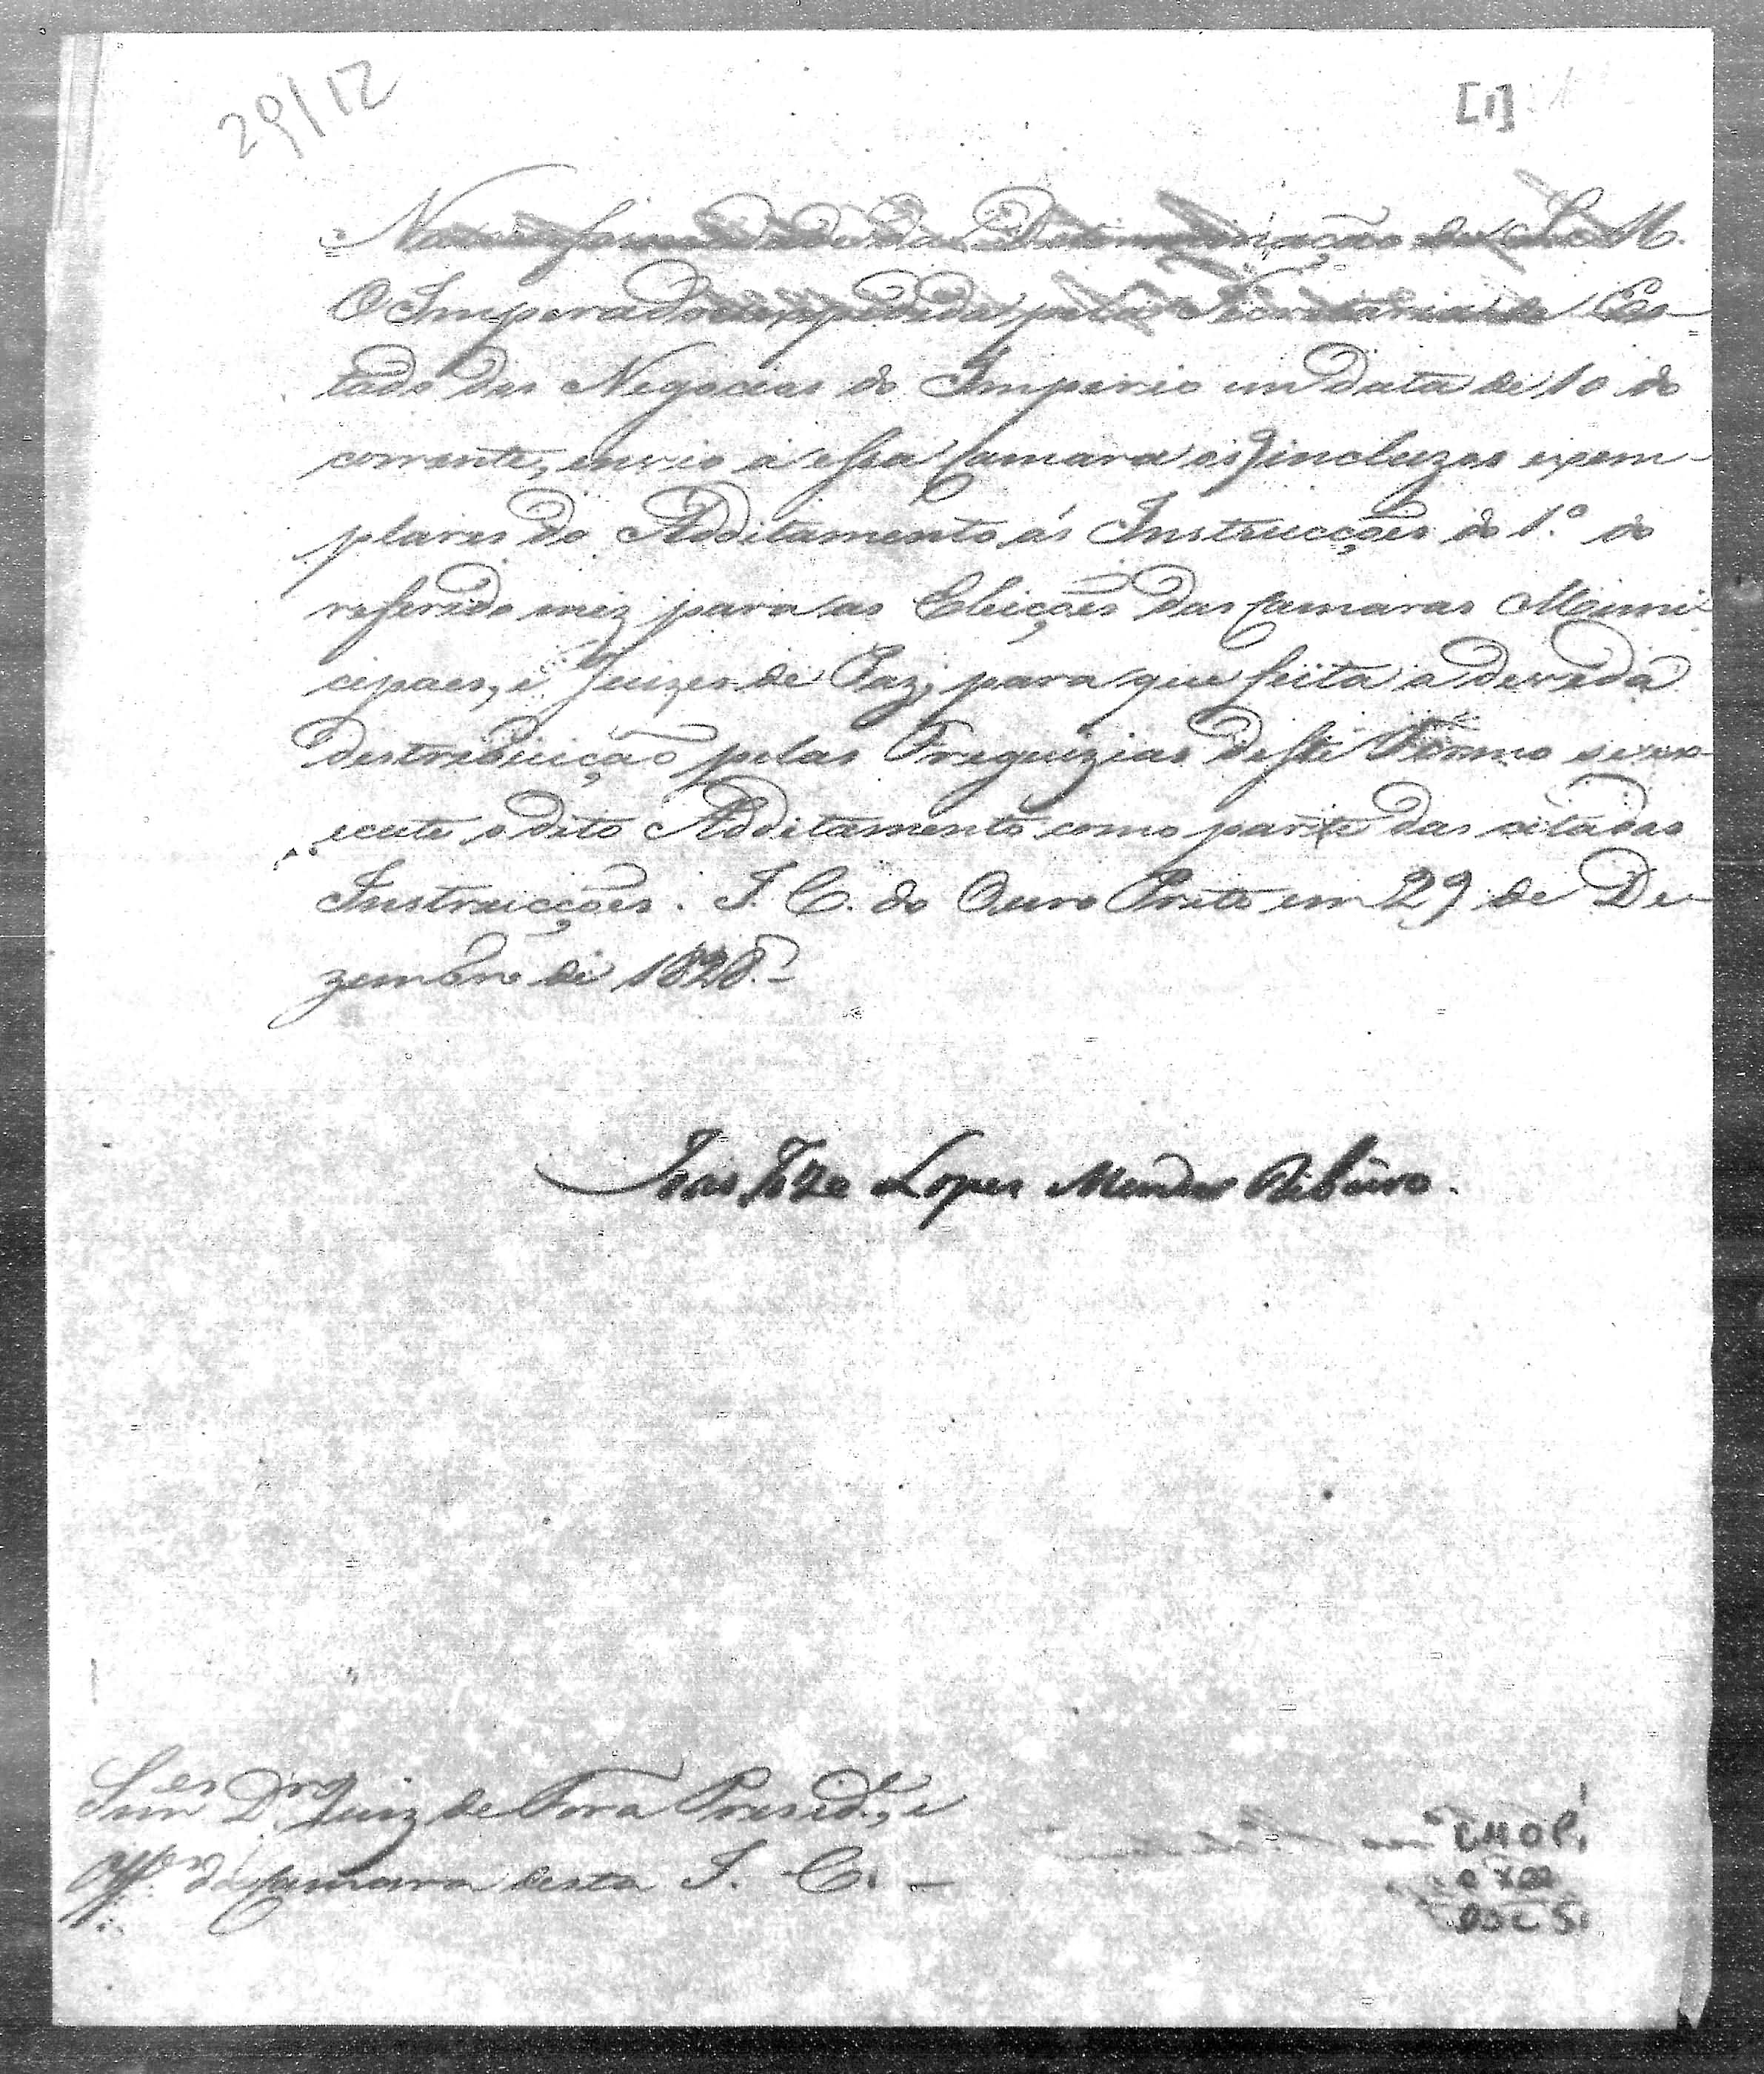 29/12
[1]
Na conformidade da Determinação de S. M.
O Imperador expedida pela Secretaria de Es-
tado dos Negocios do Imperio em data de 10 do
corrente, envio a essa Camara os inclusos exem-
plares do Additamento ás Instrucções do 1.º do
referido mez para as Eleições das Camaras Muni-
cipaes, e Juizes de Paz, para que feita a devida
destribuição pelas Freguezias deste Termo se ex-
ecute o dito Additamento como parte das citadas
Instrucções. I. C. do Ouro Preto em 29 de De-
zembro de 1828.
João Joze Lopes Mendes Ribeiro.
Snr.es D.or Juiz de Fora Presid.e, e
Off.es da Camara desta I. C. —
CMOP
DOC 51